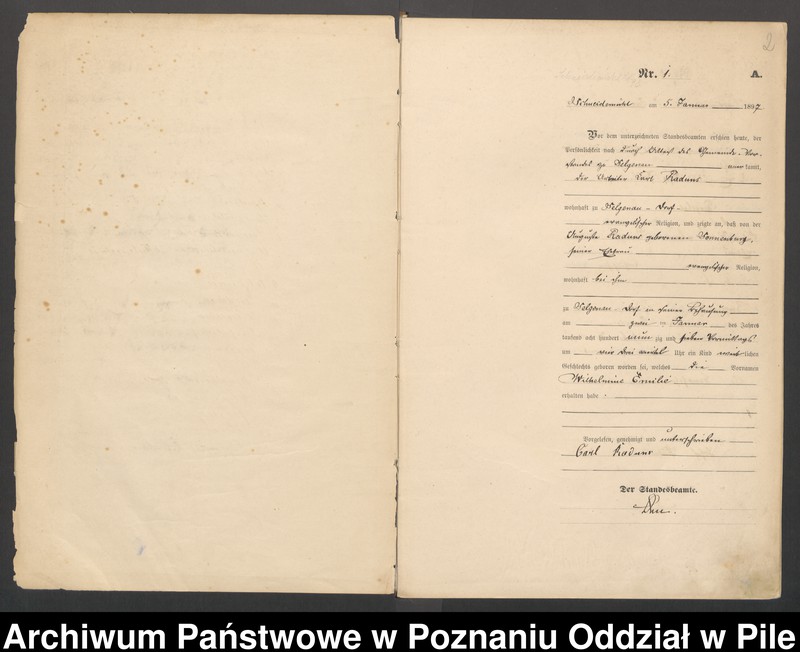 2
Nr. 1. A.
Schneidemühl am 5. Januar 1897
Vor dem unterzeichneten Standesbeamten erschien heute, der
Persönlichkeit nach durch Attest des Gemeinde-Vor-
standes zu Selgenau kannt,
der Arbeiter Karl Raduns
wohnhaft zu Selgenau - Dorf -
evangelischer Religion, und zeigte an, daß von der
Auguste Raduns geborenen Sonnenburg,
seiner Ehefrau
evangelischer Religion,
wohnhaft bei ihm
zu Selgenau Dorf in seiner Behausung
am zwei ten Januar des Jahres
tausend acht hundert neun zig und sieben Vormittags
um vier drei viertel Uhr ein Kind weib lichen
Geschlechts geboren worden sei, welches die Vornamen
Wilhelmine Emilie
erhalten habe.
Vorgelesen, genehmigt und unterschrieben
Carl Raduns
Der Standesbeamte.
Archiwum Państwowe w Poznaniu Oddział w Pile